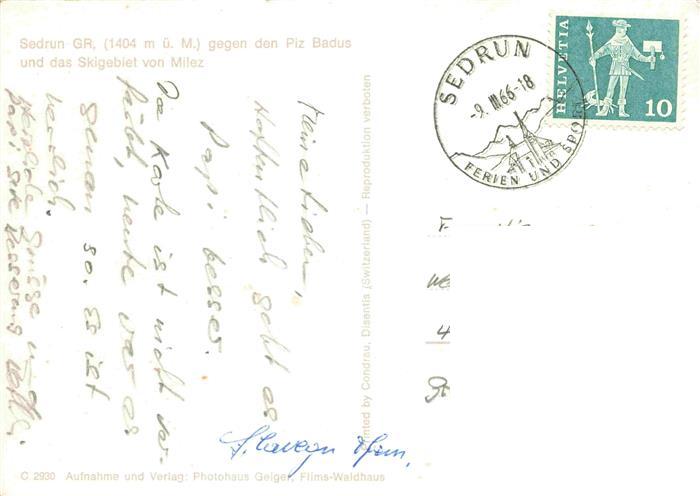 Sedrun GR, (1404 m ü. M.) gegen den Piz Badus
und das Skigebiet von Milez
SEDRUN
-9. III. 66-18
FERIEN UND SPORT
HELVETIA
10
Meine Lieben,
Hoffentlich geht es
Papi besser.
Die Karte ist nicht ver-
färbt, heute war es
genau so. Es ist
herrlich.
Herzliche Grüsse u.
Papi gute Besserung
Printed by Condrau, Disentis (Switzerland) — Reproduktion verboten
4
C 2930 Aufnahme und Verlag: Photohaus Geiger, Flims-Waldhaus